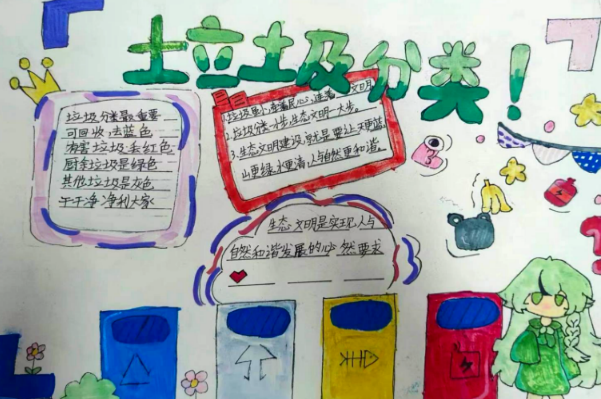 垃圾分类!
垃圾分类最重要
可回收,法蓝色
有害垃圾丢红色
厨余垃圾是绿色
其他垃圾是灰色
干干净净利大家
2.垃圾分类一小步,生态文明一大步。
3.生态文明建设,就是要让天更蓝,
山更绿,水更清,人与自然更和谐。
生态文明是实现人与
自然和谐发展的必然要求